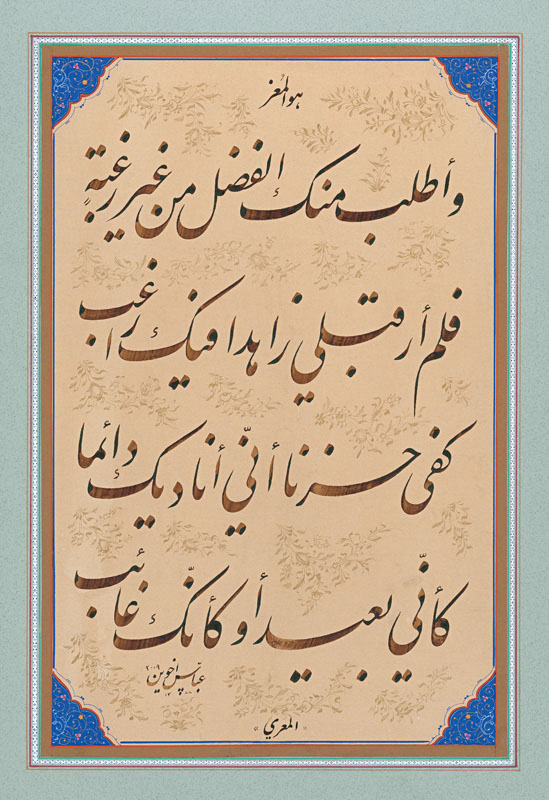 هو المعز
وأطلب منك الفضل من غير رغبةٍ
فلم أر قبلي زاهدا فيك ارغب
كفى حزنا أنّي أناديك دائما
كأنّي بعيد أو كأنّك غائب
عباس اخوين ٢٠٠٩
المعري